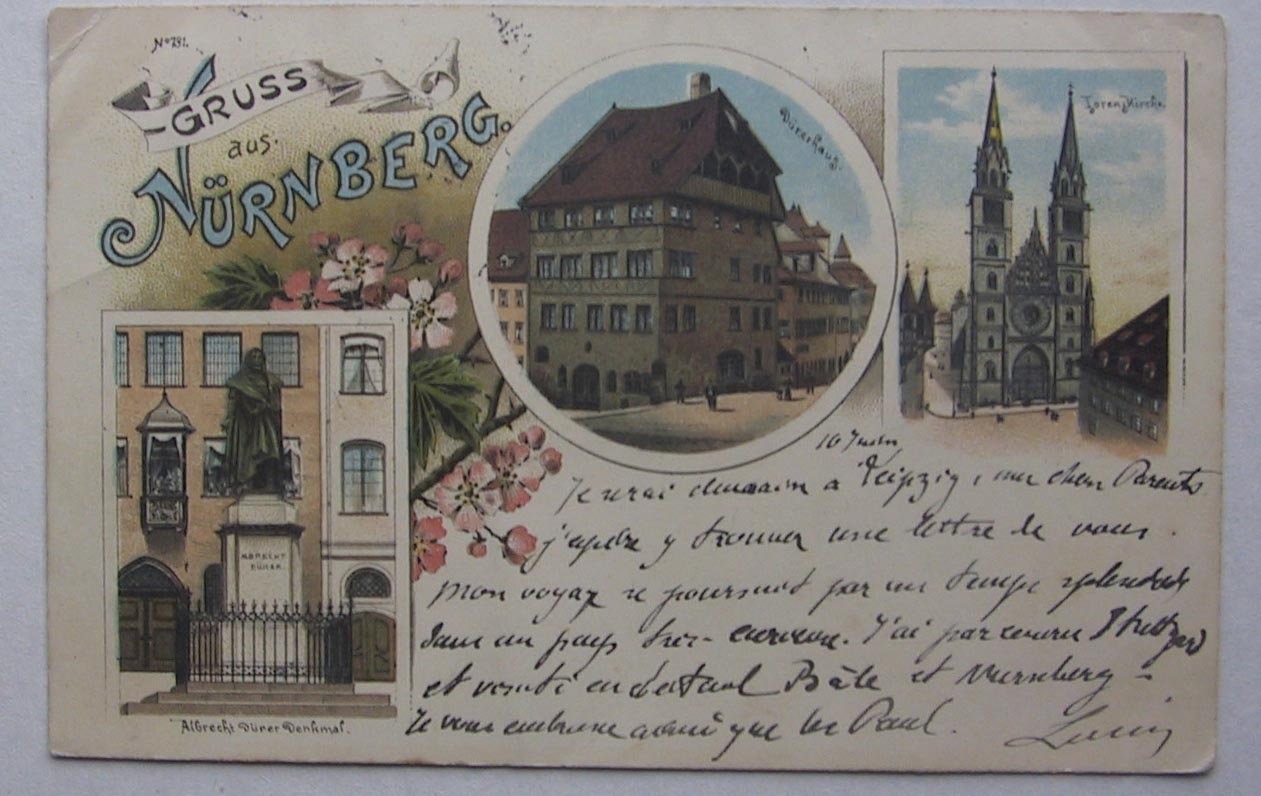 No 791.
GRUSS
aus.
NÜRNBERG.
Dürerhaus.
Lorenz Kirche.
ALBRECHT
DÜRER.
Albrecht Dürer Denkmal.
16 Juin
Je serai demain a Leipzig, mes chers Parents
j'espère y trouver une lettre de vous.
mon voyage se poursuit par un temps splendide
dans un pays très-curieux. J'ai parcouru Stuttgard
et visité en detail Bâle et Nurnberg -
Je vous embrasse ainsi que les Paul.
Louis